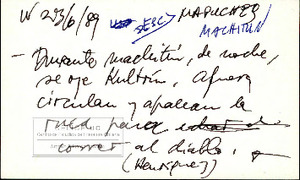 W 233/6/89 MAPUCHES
MACHITUN
- Durante machitún, de noche,
se oye Kultrún. Afuera
circulan y apalean la
ruca para echar de
correr al diablo.
(Henríquez)